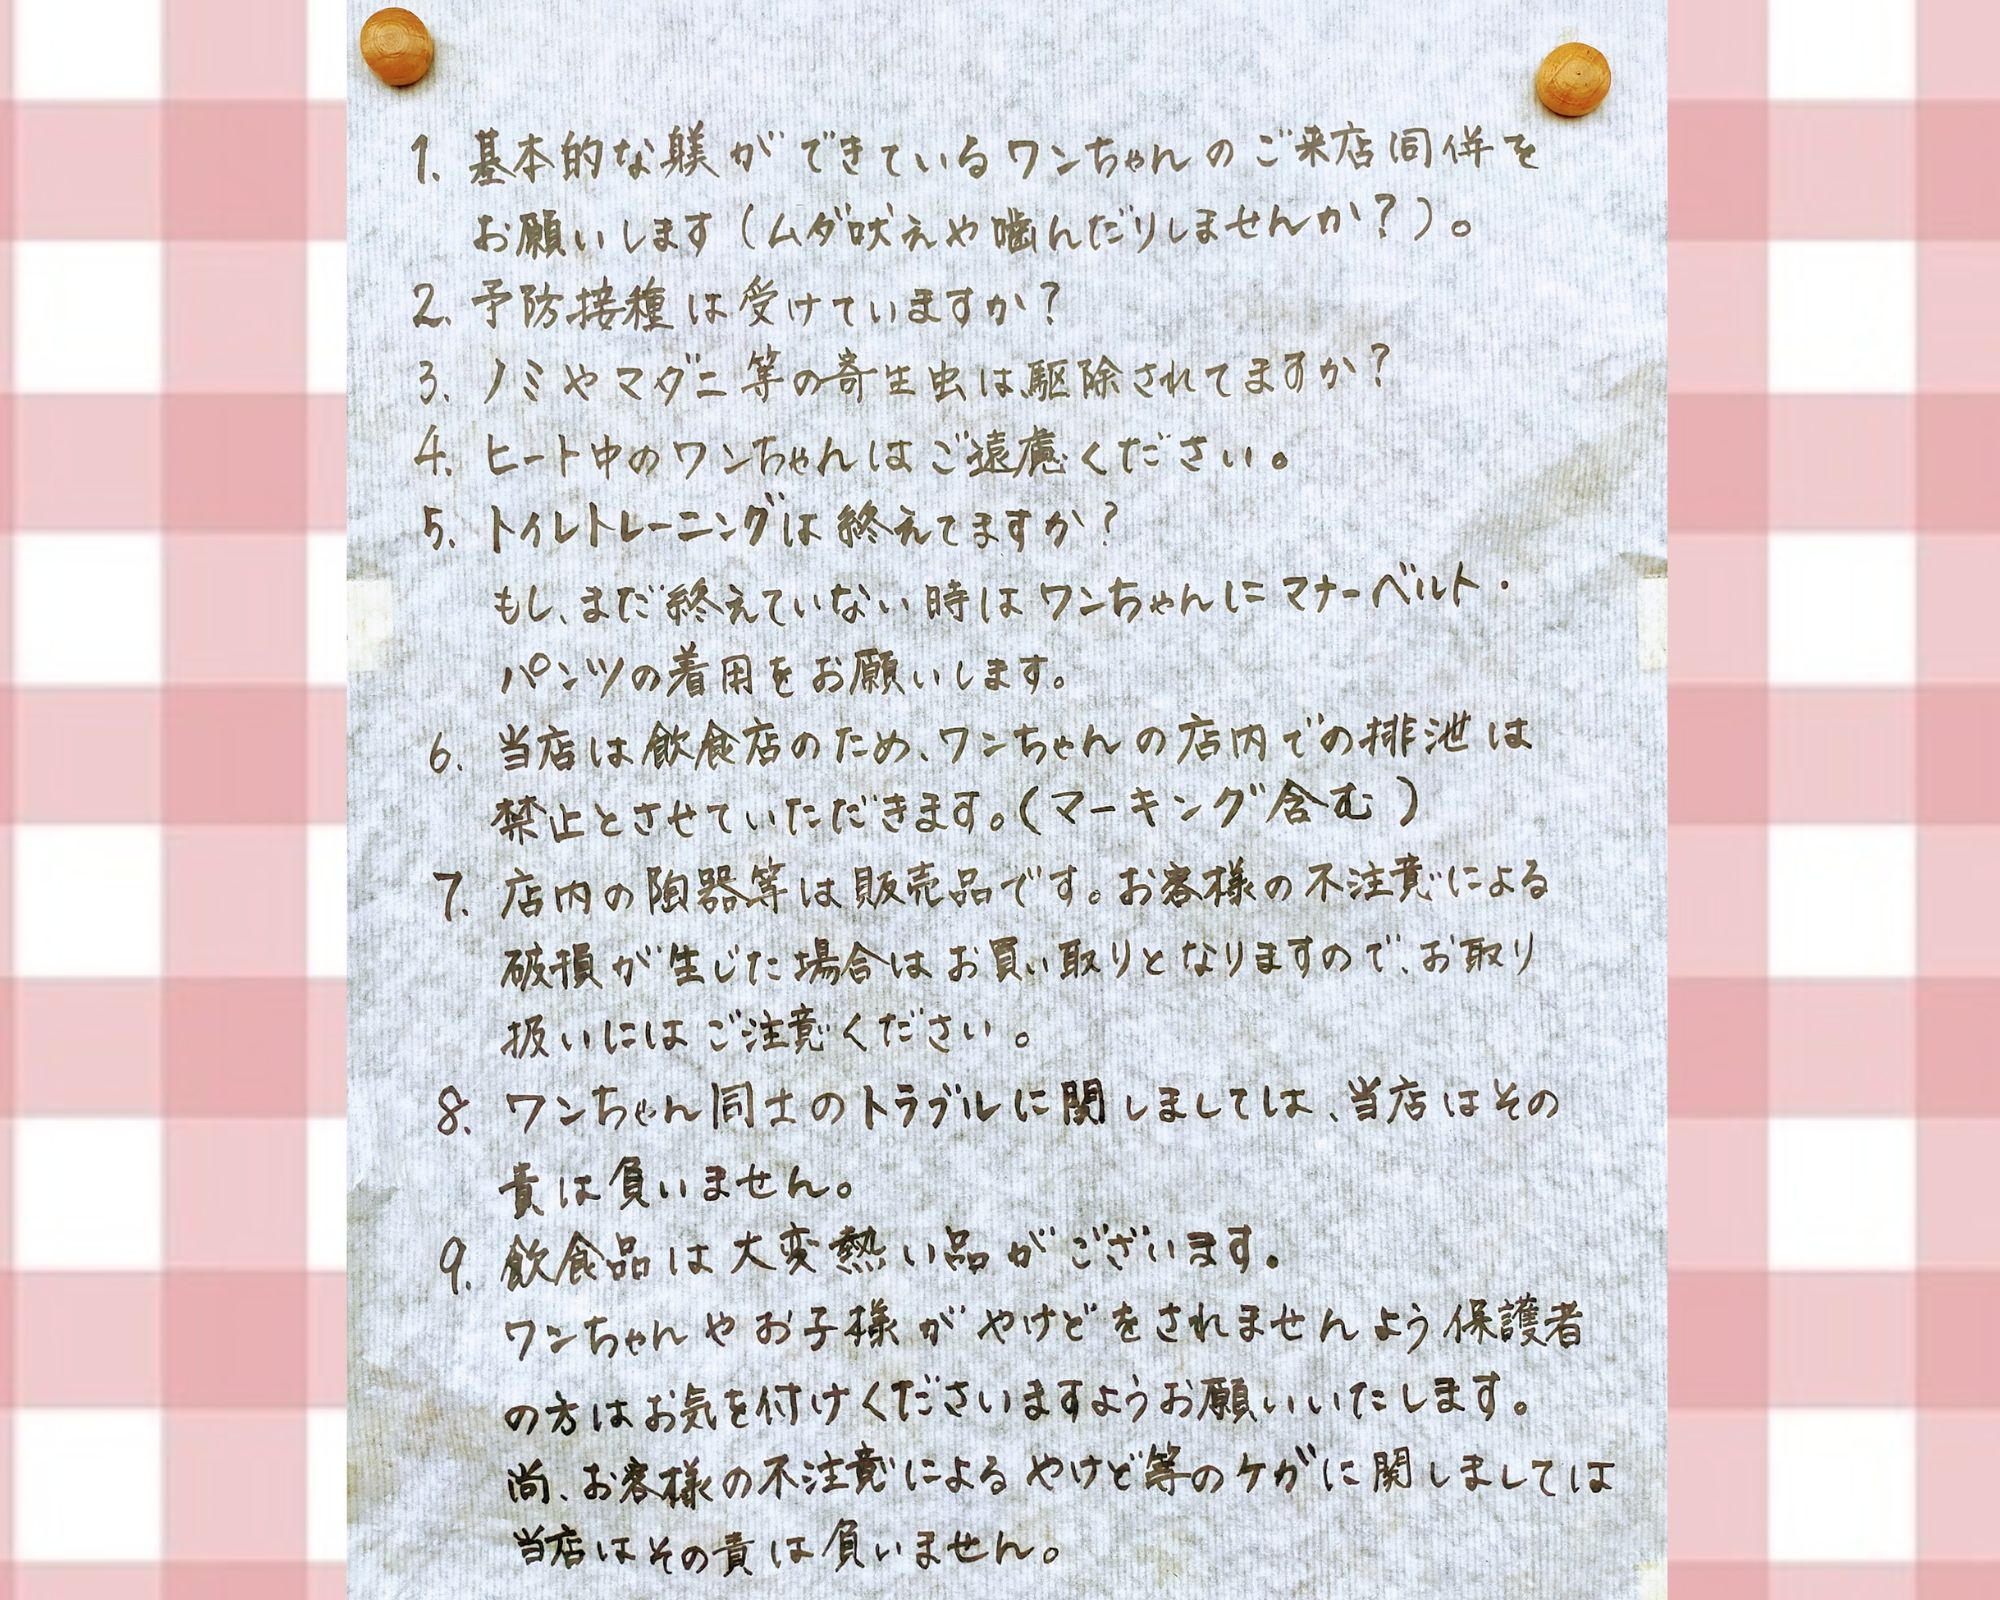 1. 基本的な躾ができているワンちゃんのご来店同併を
お願いします(ムダ吠えや噛んだりしませんか?)。
2. 予防接種は受けていますか?
3. ノミやマダニ等の寄生虫は駆除されてますか?
4. ヒート中のワンちゃんはご遠慮ください。
5. トイレトレーニングは終えてますか?
もし、まだ終えていない時はワンちゃんにマナーベルト・
パンツの着用をお願いします。
6. 当店は飲食店のため、ワンちゃんの店内での排泄は
禁止とさせていただきます。(マーキング含む)
7. 店内の陶器等は販売品です。お客様の不注意による
破損が生じた場合はお買い取りとなりますので、お取り
扱いにはご注意ください。
8. ワンちゃん同士のトラブルに関しましては、当店はその
責は負いません。
9. 飲食品は大変熱い品がございます。
ワンちゃんやお子様がやけどをされませんよう保護者
の方はお気を付けくださいますようお願いいたします。
尚、お客様の不注意によるやけど等のケガに関しましては
当店はその責は負いません。